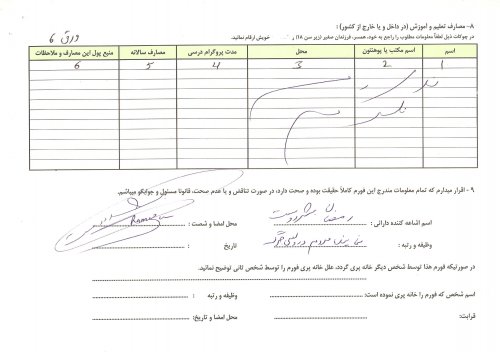 ورق 6
۸- مصارف تعلیم و آموزش (در داخل و یا خارج از کشور) :
در جوکات ذیل لطفاً معلومات مطلوب را راجع به خود، همسر، فرزندان صغیر (زیر سن ۱۸) خویش ارقام نمائید.
اسم اسم مکتب یا پوهنتون محل مدت پروگرام درسی مصارف سالانه منبع پول این مصارف و ملاحظات
1 2 3 4 5 6
۹ - اقرار میدارم که تمام معلومات مندرج این فورم کاملاً حقیقت بوده و صحت دارد، در صورت تناقض و یا عدم صحت، قانوناً مسئول و جوابگو میباشم.
اسم اشاعه کننده دارائی : رمضان بشردوست محل امضا و شصت :
وظیفه و رتبه : تاریخ :
در صورتیکه فورم هذا توسط شخص دیگر خانه پری گردد، علل خانه پری فورم را توسط شخص ثانی توضیح نمائید.
اسم شخص که فورم را خانه پری نموده است: وظیفه و رتبه :
قرابت: محل امضا و تاریخ: